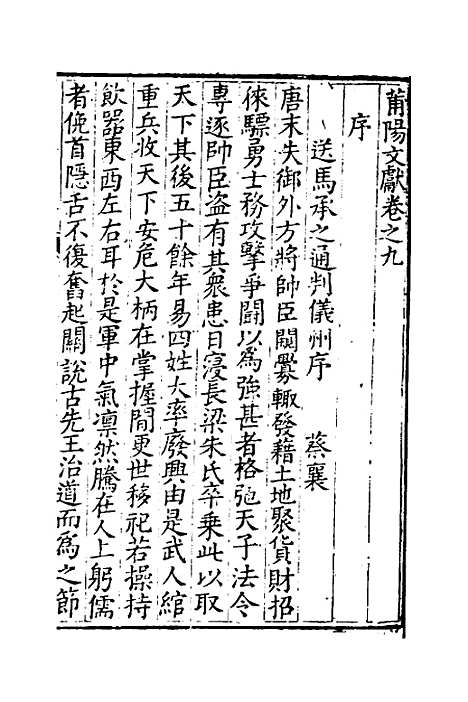 莆陽文獻卷之九
序
送馬承之通判儀州序 蔡襄
唐末失御外方將帥臣閱釁輙發藉土地聚貨財招
徠驃勇士務攻擊爭鬪以爲強甚者格弛天子法令
專逐帥臣盗有其衆患日寖長梁朱氏卒乗此以取
天下其後五十餘年易四姓大率廢興由是武人綰
重兵收天下安危大柄在掌握間更世移祀若操持
飲器東西左右耳於是軍中氣凛然騰在人上躬儒
者俛首隱舌不復奮起關說古先王治道而爲之節